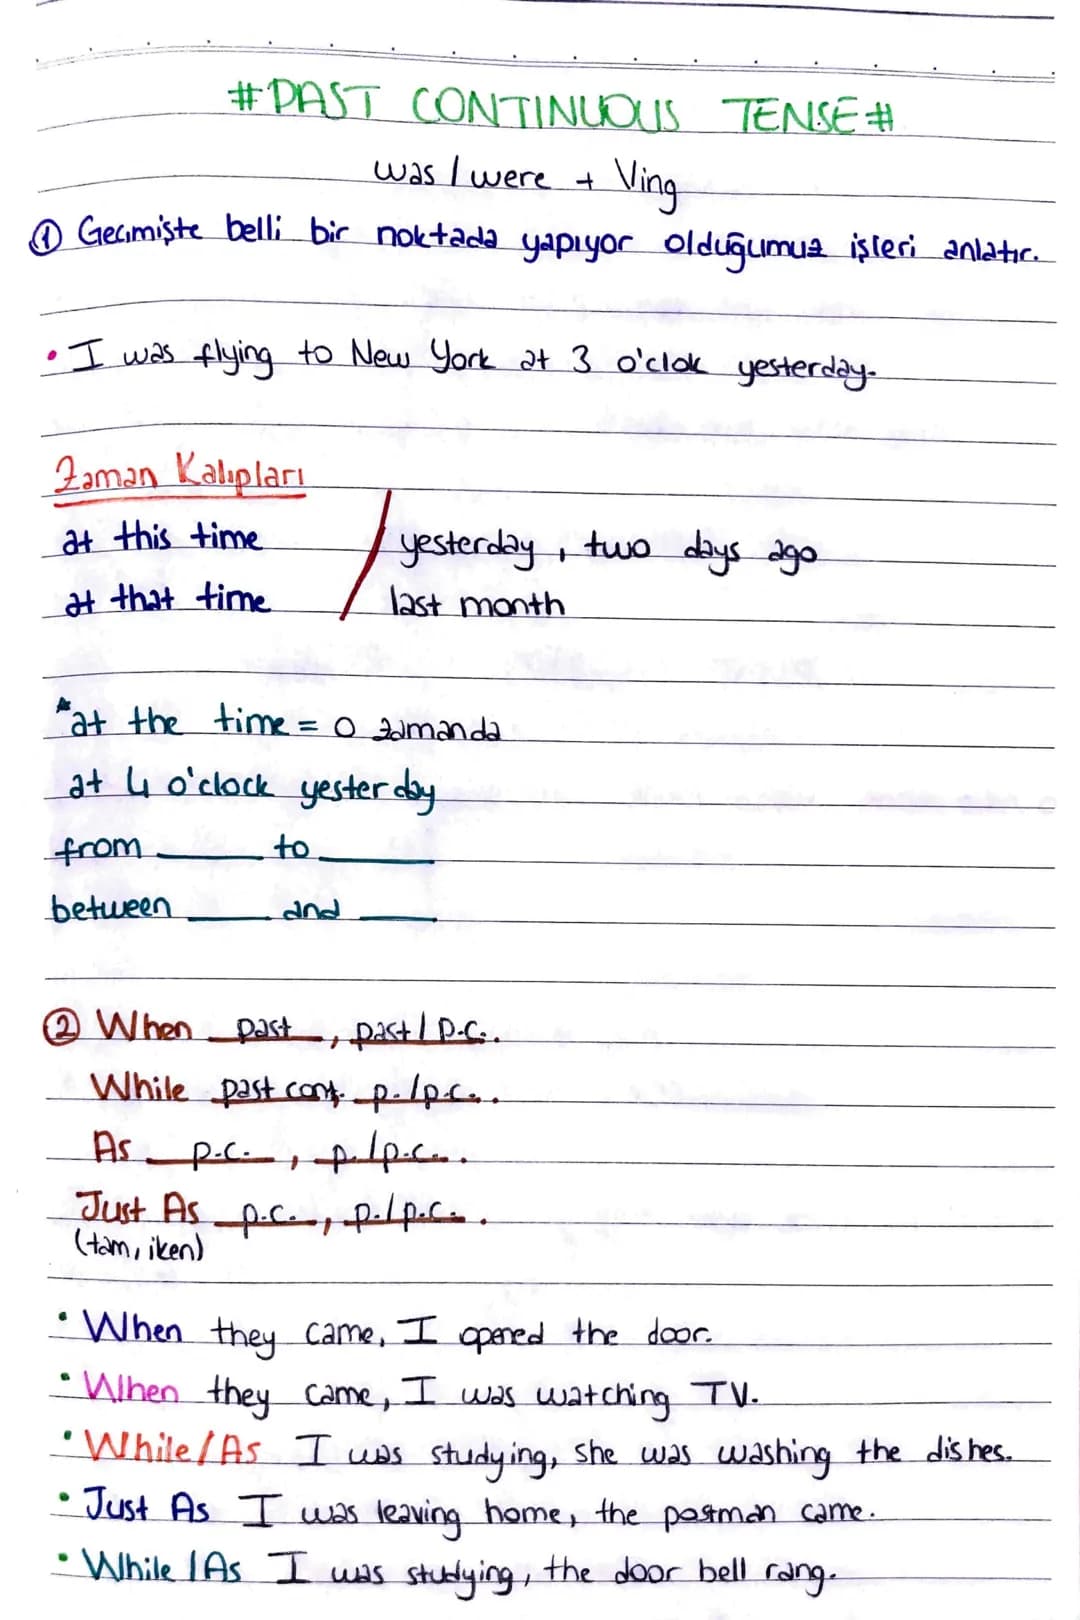 #PAST CONTINUOUS TENSE#
was / were + Ving
① Geçmişte belli bir noktada yapıyor olduğumuz işleri anlatır.
• I was flying to New York at 3 o'clok yesterday.
Zaman Kalıpları
at this time / yesterday, two days ago
at that time / last month
*at the time = o zamanda
at 4 o'clock yesterday
from ____ to ____
between ____ and ____.
② When past, past / p.c..
While past cont. p. /p.c..
As p.c., p./p.c..
Just As p.c., p./p.c..
(tam, iken)
• When they came, I opened the door.
• When they came, I was watching TV.
• While / As I was studying, she was washing the dishes.
• Just As I was leaving home, the postman came.
• While / As I was studying, the door bell rang.